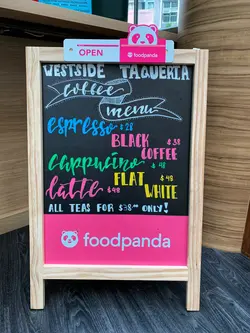 OPEN
foodpanda
WESTSIDE TAQUERIA
coffee
menu
espresso $28
BLACK COFFEE $38
cappucino $48
FLAT WHITE $48
latte $48
ALL TEAS FOR $38.00 ONLY!
foodpanda